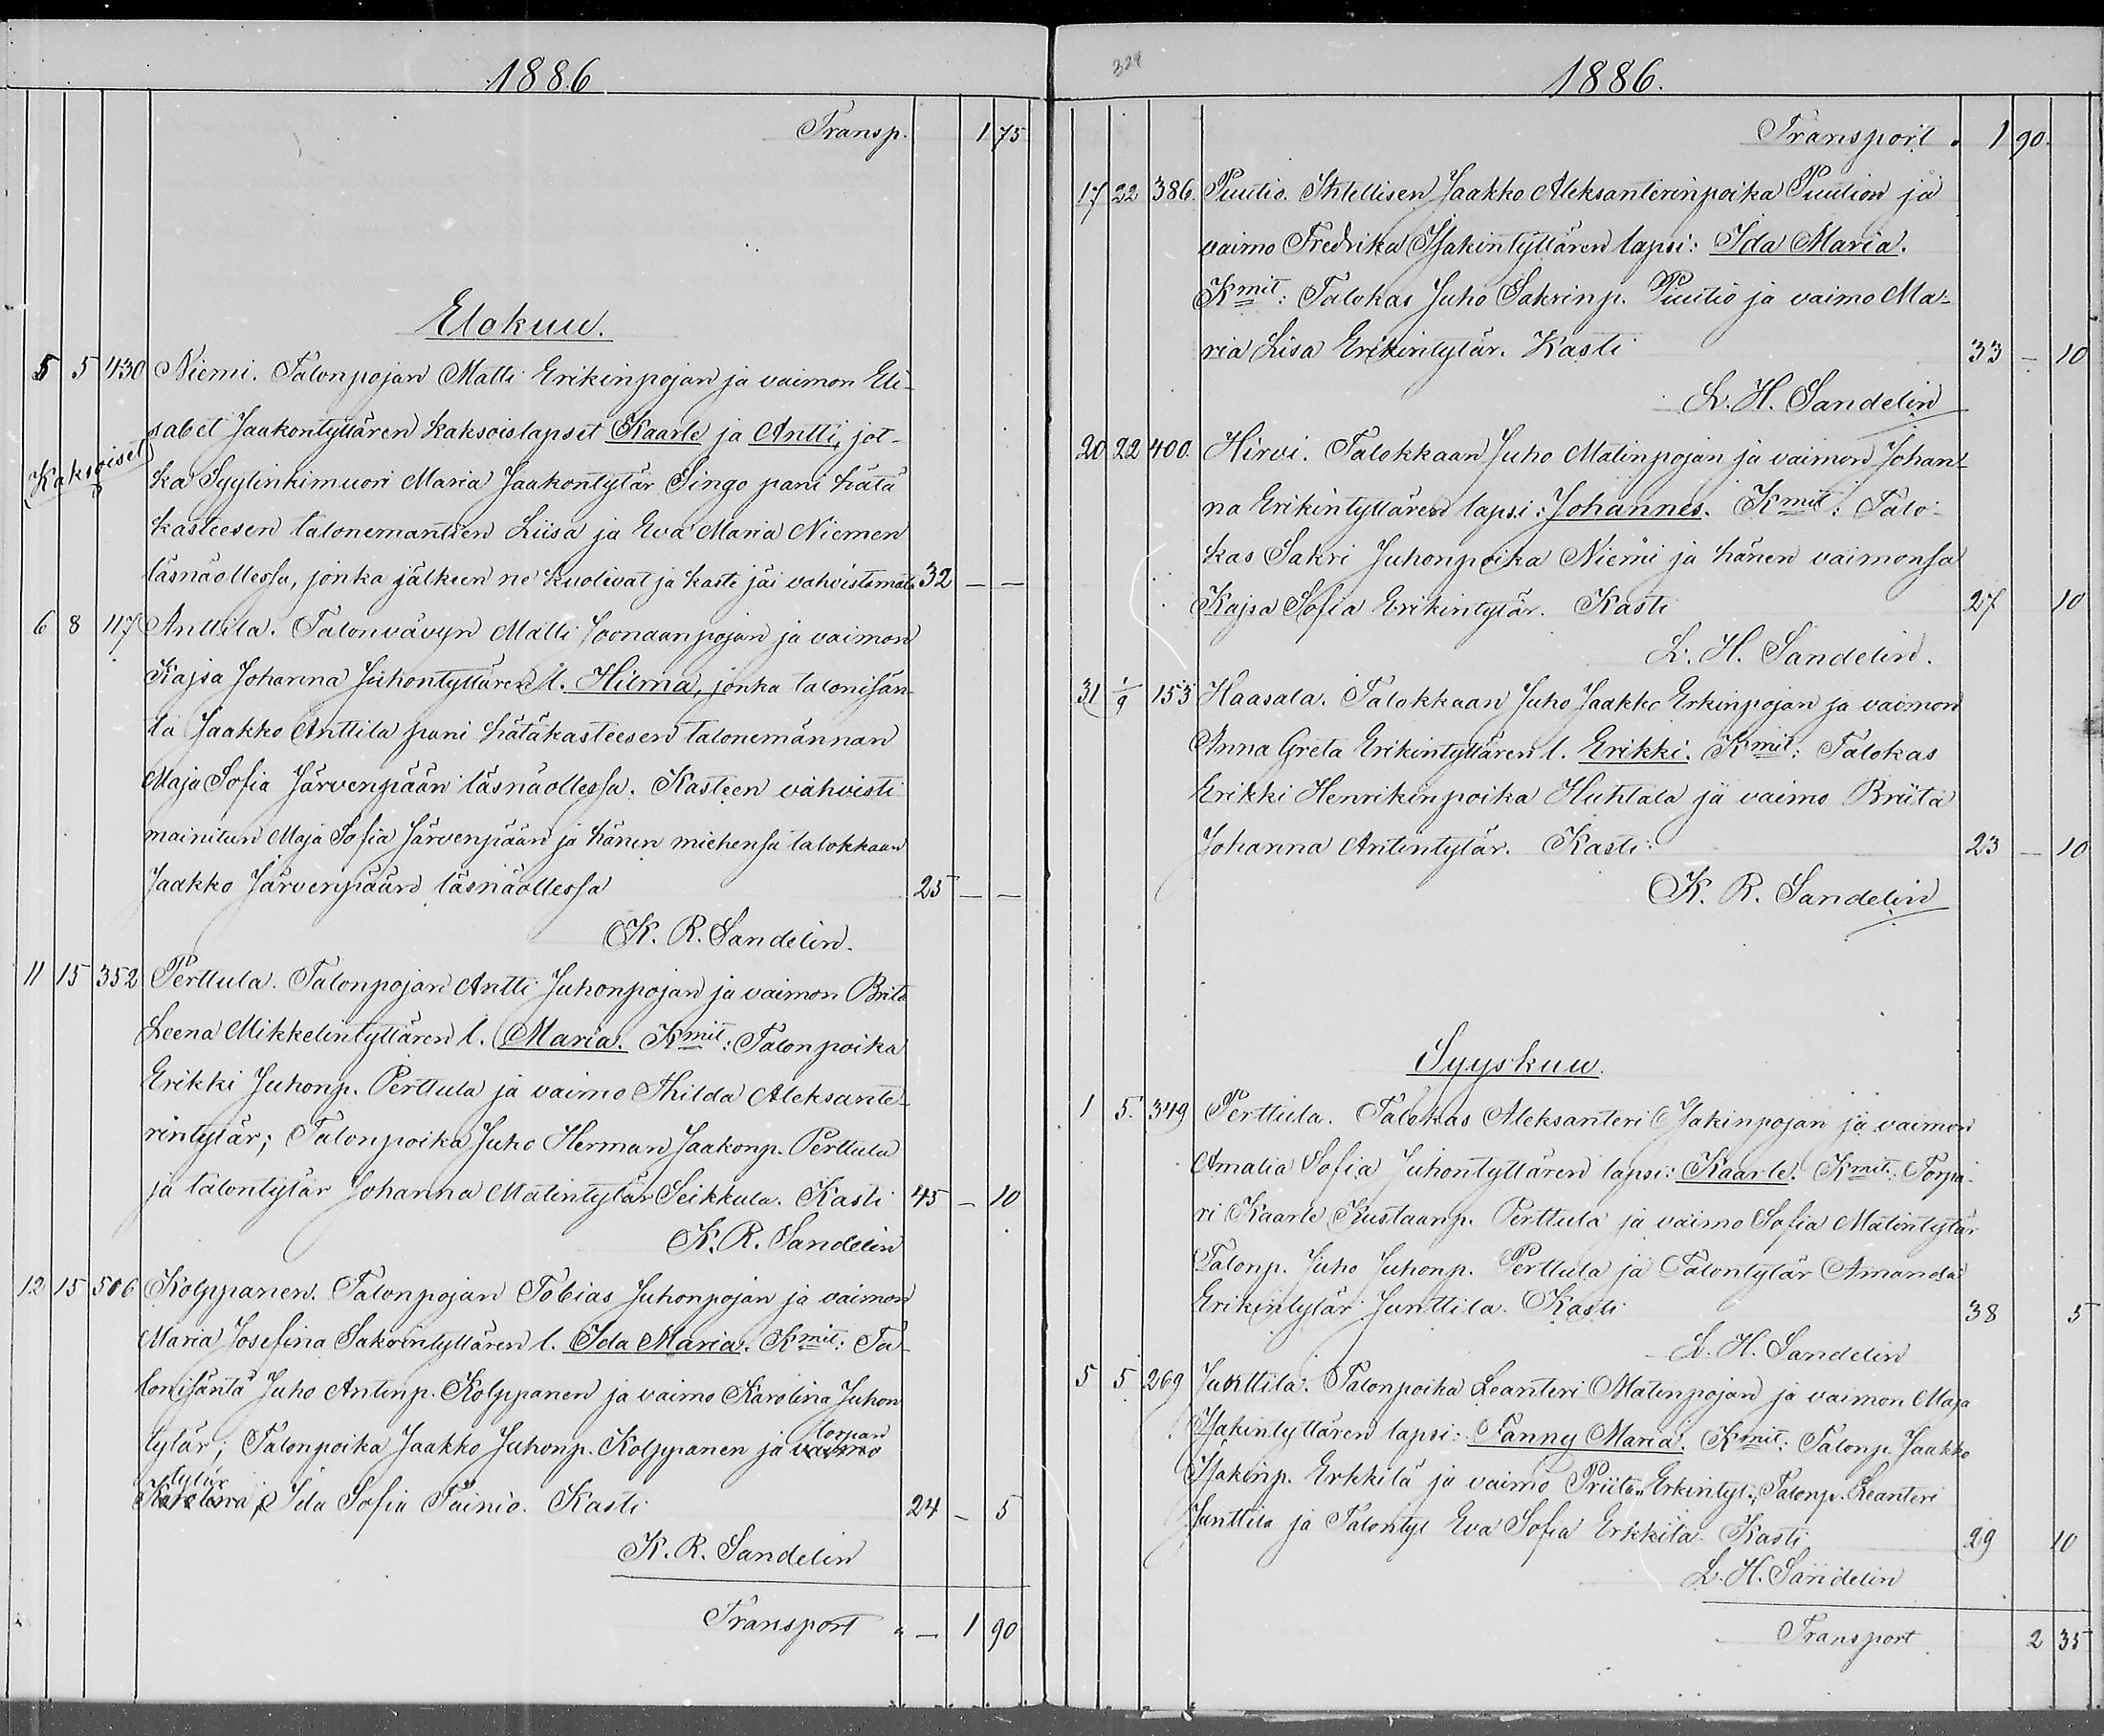 1886
Transp. 1 75
Elokuu.
5 5 430 Niemi. Talonpojan Matti Erikinpojan ja vaimon Eli-
sabet Jaakontyttären kaksoislapset Kaarle ja Antti, jot-
Kaksoiset
ka Syytinkimuori Maria Jaakontytär Singo pani hätä
kasteesen talonemäntien Liisa ja Eva Maria Niemen
läsnäollessa, jonka jälkeen ne kuolivat ja kaste jäi vahvistamata 32 — —
6 8 117 Anttila. Talonvävyn Matti Joonaanpojan ja vaimon
Kajsa Johanna Juhontyttären l. Hilma, jonka talonisän-
tä Jaakko Anttila pani hätäkasteesen talonemännän
Maja Sofia Järvenpään läsnäollessa. Kasteen vahvisti
mainitun Maja Sofia Järvenpään ja hänen miehensä talokkaan
Jaakko Järvenpään läsnäollessa 25 — —
K. R. Sandelin.
11 15 352 Perttula. Talonpojan Antti Juhonpojan ja vaimon Brita
Leena Mikkelintyttären l. Maria. Kmit: Talonpoika
Erikki Juhonp. Perttula ja vaimo Thilda Aleksante-
rintytär; Talonpoika Juho Herman Jaakonp. Perttula
ja talontytär Johanna Matintytär Seikkula. Kasti 45 — 10
K. R. Sandelin
12 15 506 Kolppanen. Talonpojan Tobias Juhonpojan ja vaimon
Maria Josefina Sakrintyttären l. Ida Maria. Kmit: Ta-
lonisäntä Juho Antinp. Kolppanen ja vaimo Karolina Juhon
torpan
tytär; Talonpoika Jaakko Juhonp. Kolppanen ja vaimo
tytär
Karolina, Ida Sofia Tainio. Kasti 24 — 5
K. R. Sandelin
Transport " — 1 90
324
1886.
Transport. 1 90.
17 22 386. Puutio. Itstellisen Jaakko Aleksanterinpoika Puution ja
vaimo Fredrika Isakintyttären lapsi: Ida Maria.
Kmit: Talokas Juho Sakrinp. Puutio ja vaimo Ma-
ria Lisa Erikintytär. Kasti 33 — 10
L. H. Sandelin
20 22 400. Hirvi. Talokkaan Juho Matinpojan ja vaimon Johan-
na Erikintyttären lapsi: Johannes. Kmit: Talo-
kas Sakri Juhonpoika Niemi ja hänen vaimonsa
Kajsa Sofia Erikintytär. Kasti 27 10
L. H. Sandelin.
31 1/9 153 Haasala. Talokkaan Juho Jaakko Erkinpojan ja vaimon
Anna Greta Erikintyttären l. Erikki. Kmit: Talokas
Erikki Henrikinpoika Huhtala ja vaimo Briita
Johanna Antintytär. Kasti: 23 — 10
K. R. Sandelin
Syyskuu.
1 5. 349 Perttula. Talokas Aleksanteri Isakinpojan ja vaimon
Amalia Sofia Juhontyttären lapsi: Kaarle. Kmit: Torpa-
ri Kaarle Kustaanp. Perttula ja vaimo Sofia Matintytär
Talonp. Juho Juhonp. Perttula ja Talontytär Amanda
Erikintytär Junttila. Kasti 38 5
L. H. Sandelin
5 5 269 Junttila. Talonpoika Leanteri Matinpojan ja vaimon Maja
Isakintyttären lapsi: Fanny Maria. Kmit: Talonp. Jaakko
Isakinp. Erkkilä ja vaimo Priita Erkintyt., Talonp. Leanteri
Junttila ja Talontyt Eva Sofia Erkkilä. Kasti 29 10
L. H. Sandelin
Transport 2 35